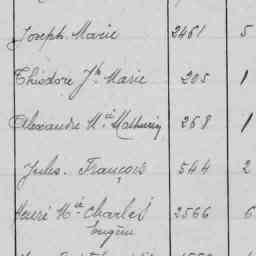 Joseph Marie 2461 5
Théodore Jh Marie 205 1
Alexandre Mie Mathurin 268 1
Jules. François 544 2
Henri Mie Charles 2566 6
Eugène